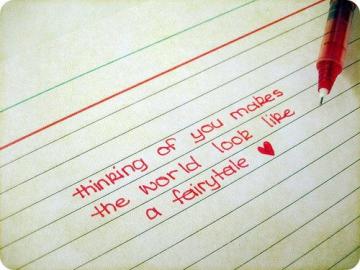 thinking of you makes
the world look like
a fairytale ♥